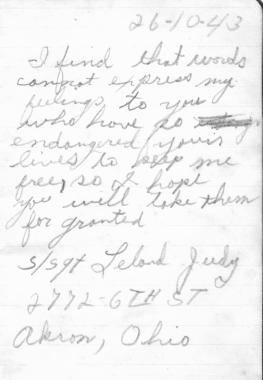 26-10-43
I find that words
cannot express my
feelings to you
who have so
endangered yours
lives to keep me
free, so I hope
you will take them
for granted
S/Sgt Leland Judy
2772-6TH ST
Akron, Ohio